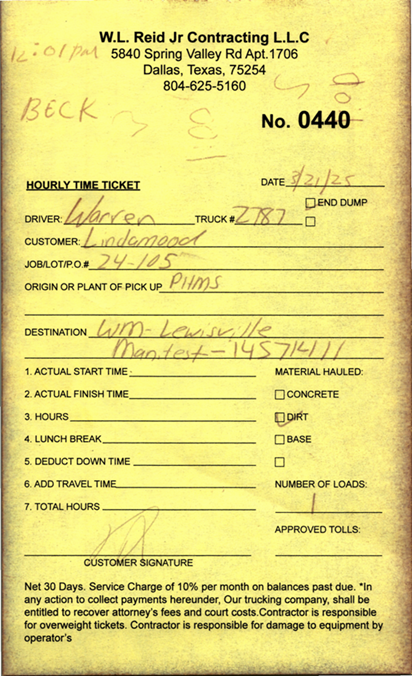 W.L. Reid Jr Contracting L.L.C
5840 Spring Valley Rd Apt.1706
Dallas, Texas, 75254
804-625-5160
12:01pm
BECK
No. 0440
HOURLY TIME TICKET
DATE 3/21/25
END DUMP
DRIVER: Warren TRUCK # 2787
CUSTOMER: Lindamood
JOB/LOT/P.O.# 24-105
ORIGIN OR PLANT OF PICK UP PHMS
DESTINATION WM-Lewisville
Manifest-14571411
1. ACTUAL START TIME MATERIAL HAULED:
2. ACTUAL FINISH TIME CONCRETE
3. HOURS DIRT
4. LUNCH BREAK BASE
5. DEDUCT DOWN TIME
6. ADD TRAVEL TIME NUMBER OF LOADS:
7. TOTAL HOURS 1
APPROVED TOLLS:
CUSTOMER SIGNATURE
Net 30 Days. Service Charge of 10% per month on balances past due. *In
any action to collect payments hereunder, Our trucking company, shall be
entitled to recover attorney's fees and court costs.Contractor is responsible
for overweight tickets. Contractor is responsible for damage to equipment by
operator's